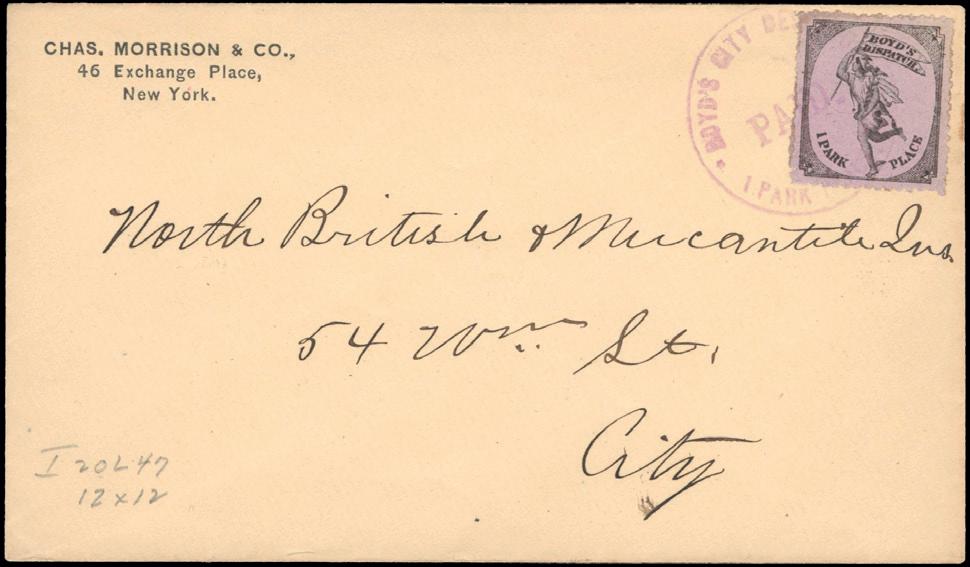 CHAS. MORRISON & CO.,
46 Exchange Place,
New York.
BOYD'S CITY DES
PAID
1 PARK
BOYD'S
DISPATCH.
1 PARK PLACE
North British & Mercantile Ins.
54 Wm St.
City
I 20L47
12x12